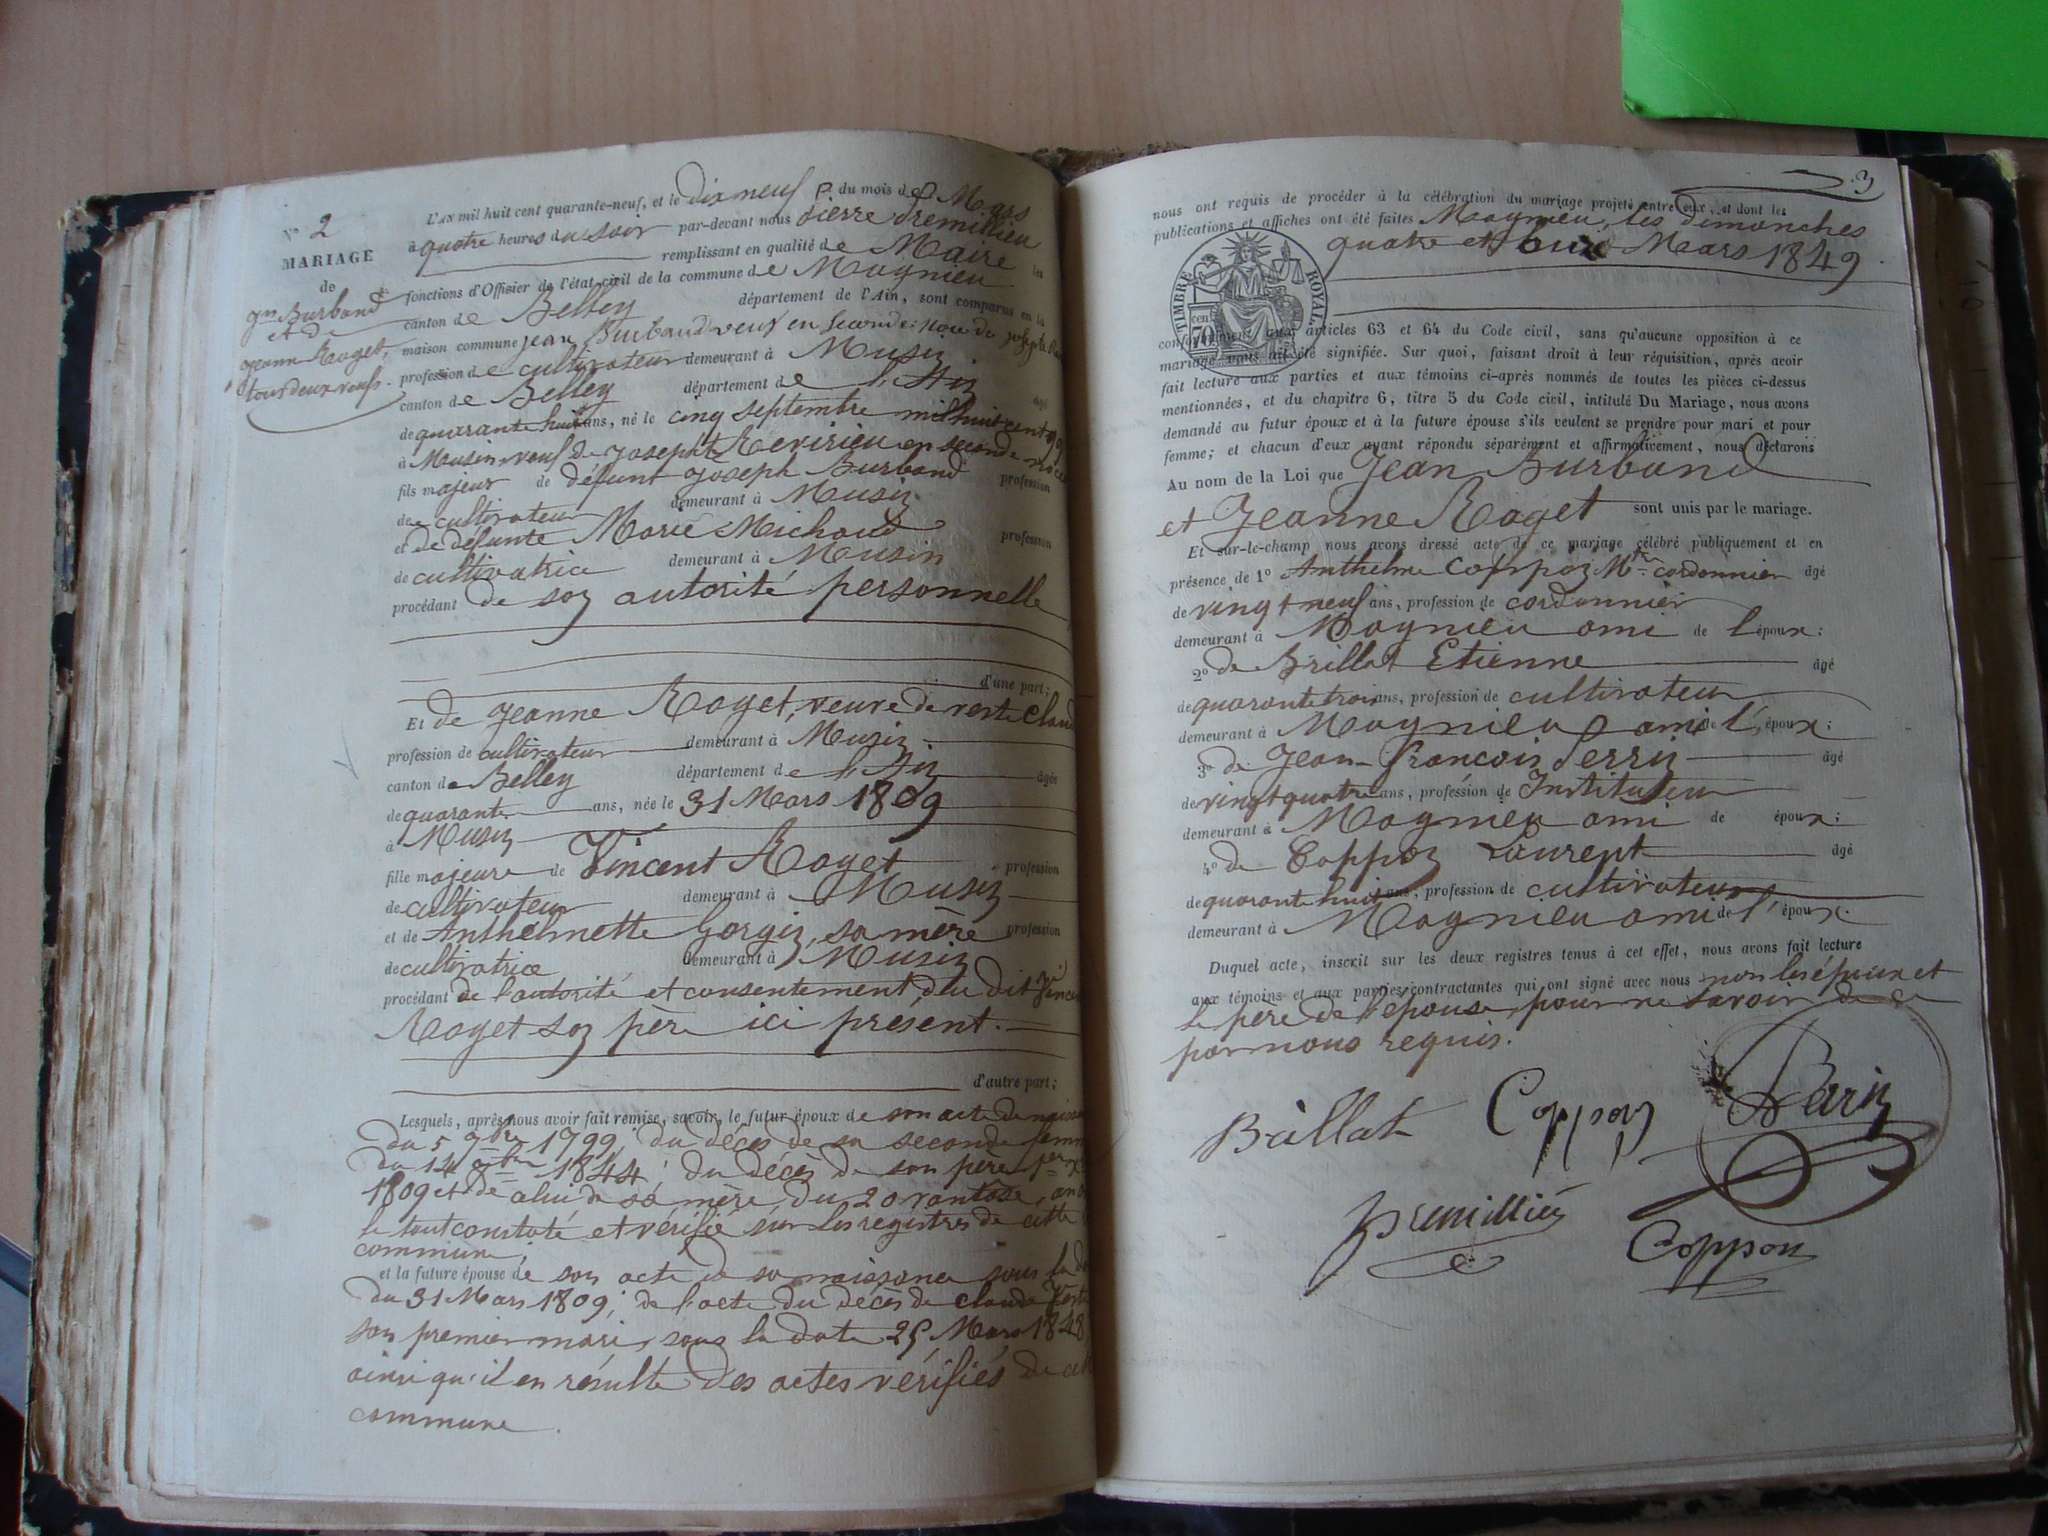 N° 2
MARIAGE
de
jn Burband
et de
Jeanne Roget,
tous deux veufs.
L'AN mil huit cent quarante-neuf, et le dix neuf du mois de Mars
à quatre heures du soir par-devant nous Pierre Premillieu
remplissant en qualité de Maire les
fonctions d'Officier de l'état-civil de la commune de Magnieu
canton de Belley département de l'Ain, sont comparus en la
maison commune jean Burband veuf en seconde noce de josephte
profession de cultivateur demeurant à Musin
canton de Belley département de l'Ain âgé
de quarante huit ans, né le cinq septembre mil huit cent
à Mousin veuf de Josephte Revirieu en seconde noce
fils majeur de défunt Joseph Burband profession
de cultivateur demeurant à Musin
et de défunte Marie Michaud profession
de cultivatrice demeurant à Musin
procédant de son autorité personnelle
d'une part;
Et de Jeanne Roget, veuve de verte Claude
profession de cultivateur demeurant à Musin
canton de Belley département de l'Ain âgée
de quarante ans, née le 31 Mars 1809
à Musin
fille majeure de Vincent Roget profession
de cultivateur demeurant à Musin
et de Anthelmette Gorgin, sa mère profession
de cultivatrice demeurant à Musin
procédant de l'autorité et consentement du dit Vincent
Roget son père ici présent.
d'autre part;
Lesquels, après nous avoir fait remise, savoir, le futur époux de son acte de
du 5 7bre 1799; du décès de sa seconde femme
du 14 1844; du décès de son père
1809 et de celui de sa mère du 20 vantose, an
le tout constaté et vérifié sur les registres de cette
commune;
et la future épouse de son acte de sa naissance sous la
du 31 Mars 1809; de l'acte du décès de Claude Verte
son premier mari, sous la date 25 Mars 1848
ainsi qu'il en résulte des actes vérifiés de
commune.
3
nous ont requis de procéder à la célébration du mariage projeté entre eux, et dont les
publications et affiches ont été faites Magnieu, les dimanches
quatre et onze Mars 1849.
TIMBRE ROYAL
70 cen
conformément aux articles 63 et 64 du Code civil, sans qu'aucune opposition à ce
mariage nous ait été signifiée. Sur quoi, faisant droit à leur réquisition, après avoir
fait lecture aux parties et aux témoins ci-après nommés de toutes les pièces ci-dessus
mentionnées, et du chapitre 6, titre 5 du Code civil, intitulé Du Mariage, nous avons
demandé au futur époux et à la future épouse s'ils veulent se prendre pour mari et pour
femme; et chacun d'eux ayant répondu séparément et affirmativement, nous déclarons
Au nom de la Loi que Jean Burband
et Jeanne Roget sont unis par le mariage.
Et sur-le-champ nous avons dressé acte de ce mariage célébré publiquement et en
présence de 1° Anthelme Coppoz Mtre cordonnier âgé
de vingt neuf ans, profession de cordonnier
demeurant à Magnieu ami de l'époux:
2° de Brillat Etienne âgé
de quarante trois ans, profession de cultivateur
demeurant à Magnieu ami de l'époux:
3° de Jean François Perrin âgé
de vingt quatre ans, profession de Instituteur
demeurant à Magnieu ami de époux:
4° de Coppoz Laurent âgé
de quarante huit ans, profession de cultivateur
demeurant à Magnieu ami de l'époux.
Duquel acte, inscrit sur les deux registres tenus à cet effet, nous avons fait lecture
aux témoins et aux parties contractantes qui ont signé avec nous non les époux et
le père de l'épouse, pour ne savoir de ce
par nous requis.
Brillat Coppoz Parin
Premillieu Coppoz